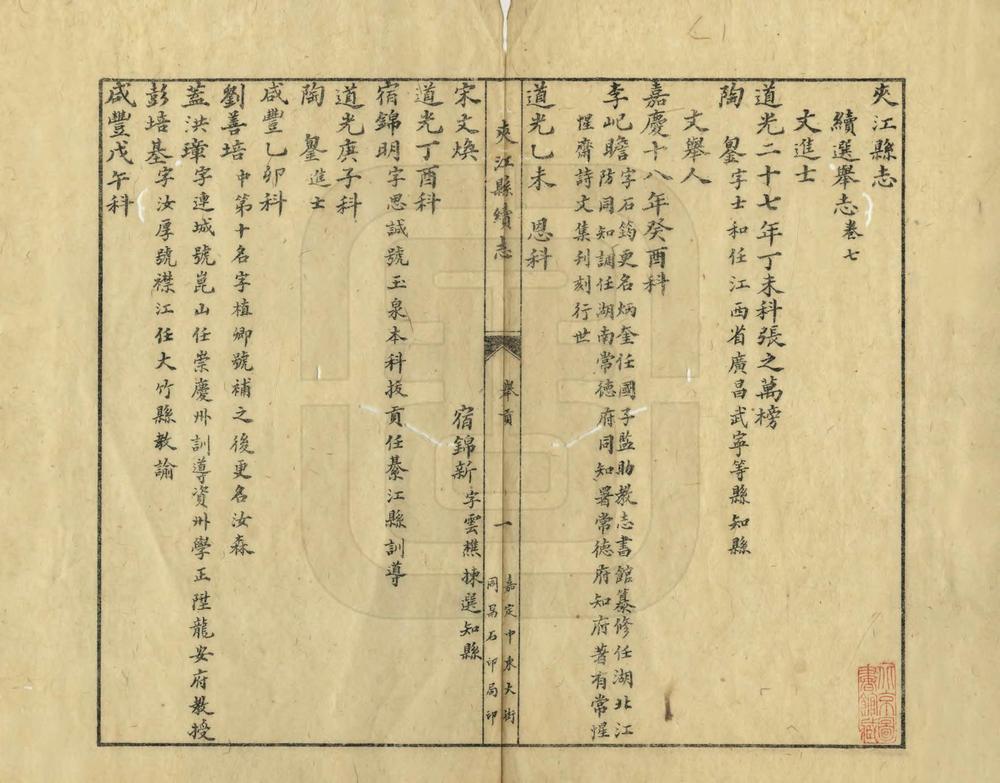 夾江縣志
續選舉志卷七
文進士
道光二十七年丁未科張之萬榜
陶 鋆字士和任江西省廣昌武寧等縣知縣
文舉人
嘉慶十八年癸酉科
李屺瞻字石筠更名炳奎任國子監助教志書館纂修任湖北江
防同知調任湖南常德府同知署常德府知府著有常惺
惺齋詩文集刋刻行世
道光乙未 恩科
夾江縣續志 舉貢 一 嘉定中東大街
同昌石印局印
宋文煥 宿錦新字雲樵揀選知縣
道光丁酉科
宿錦明字思誠號玉泉本科拔貢任綦江縣訓導
道光庚子科
陶 鋆進士
咸豐乙卯科
劉善培中第十名字植卿號補之後更名汝森
蓋洪璋字連城號崑山任崇慶州訓導資州學正陞龍安府教授
彭培基字汝厚號襟江任大竹縣教諭
咸豐戊午科